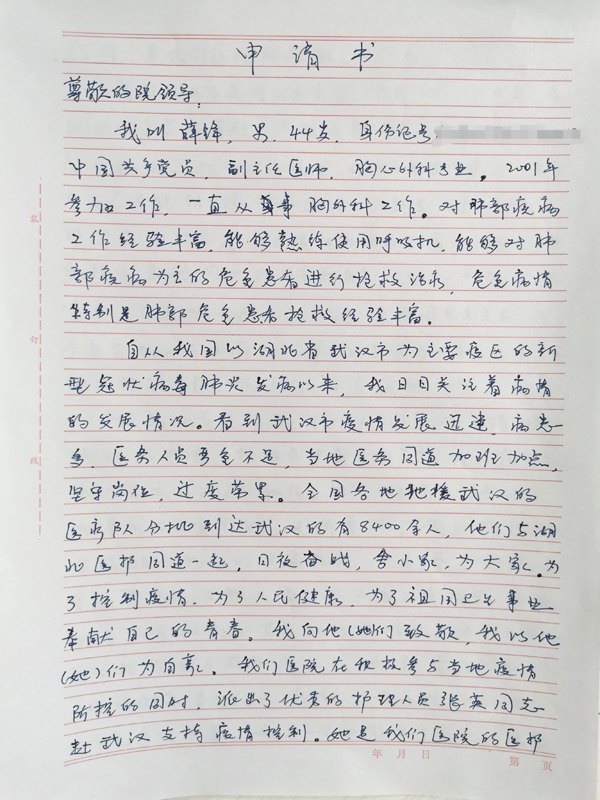 申请书
尊敬的院领导：
我叫薛锋，男，44岁，身份证号
中国共产党员，副主任医师，胸心外科专业。2001年
参加工作，一直从事胸外科工作。对肺部疾病
工作经验丰富，能够熟练使用呼吸机，能够对肺
部疾病为主的危急患者进行抢救治疗，危急病情
特别是肺部危急患者抢救经验丰富。
自从我国以湖北省武汉市为主要疫区的新
型冠状病毒肺炎发病以来，我日日关注着病情
的发展情况。看到武汉市疫情发展迅速，病患
多，医务人员严重不足，当地医务同道加班加点，
坚守岗位，过度劳累。全国各地驰援武汉的
医疗队分批到达武汉的有8400余人，他们与湖
北医护同道一起，日夜奋战，舍小家，为大家。为
了控制疫情，为了人民健康，为了祖国卫生事业
奉献自己的青春。我向他（她）们致敬，我以他
（她）们为自豪。我们医院在积极参与当地疫情
防控的同时，派出了优秀的护理人员张英同志
赴武汉支持疫情控制。她是我们医院的医护
装
订
线
年 月 日
第 页